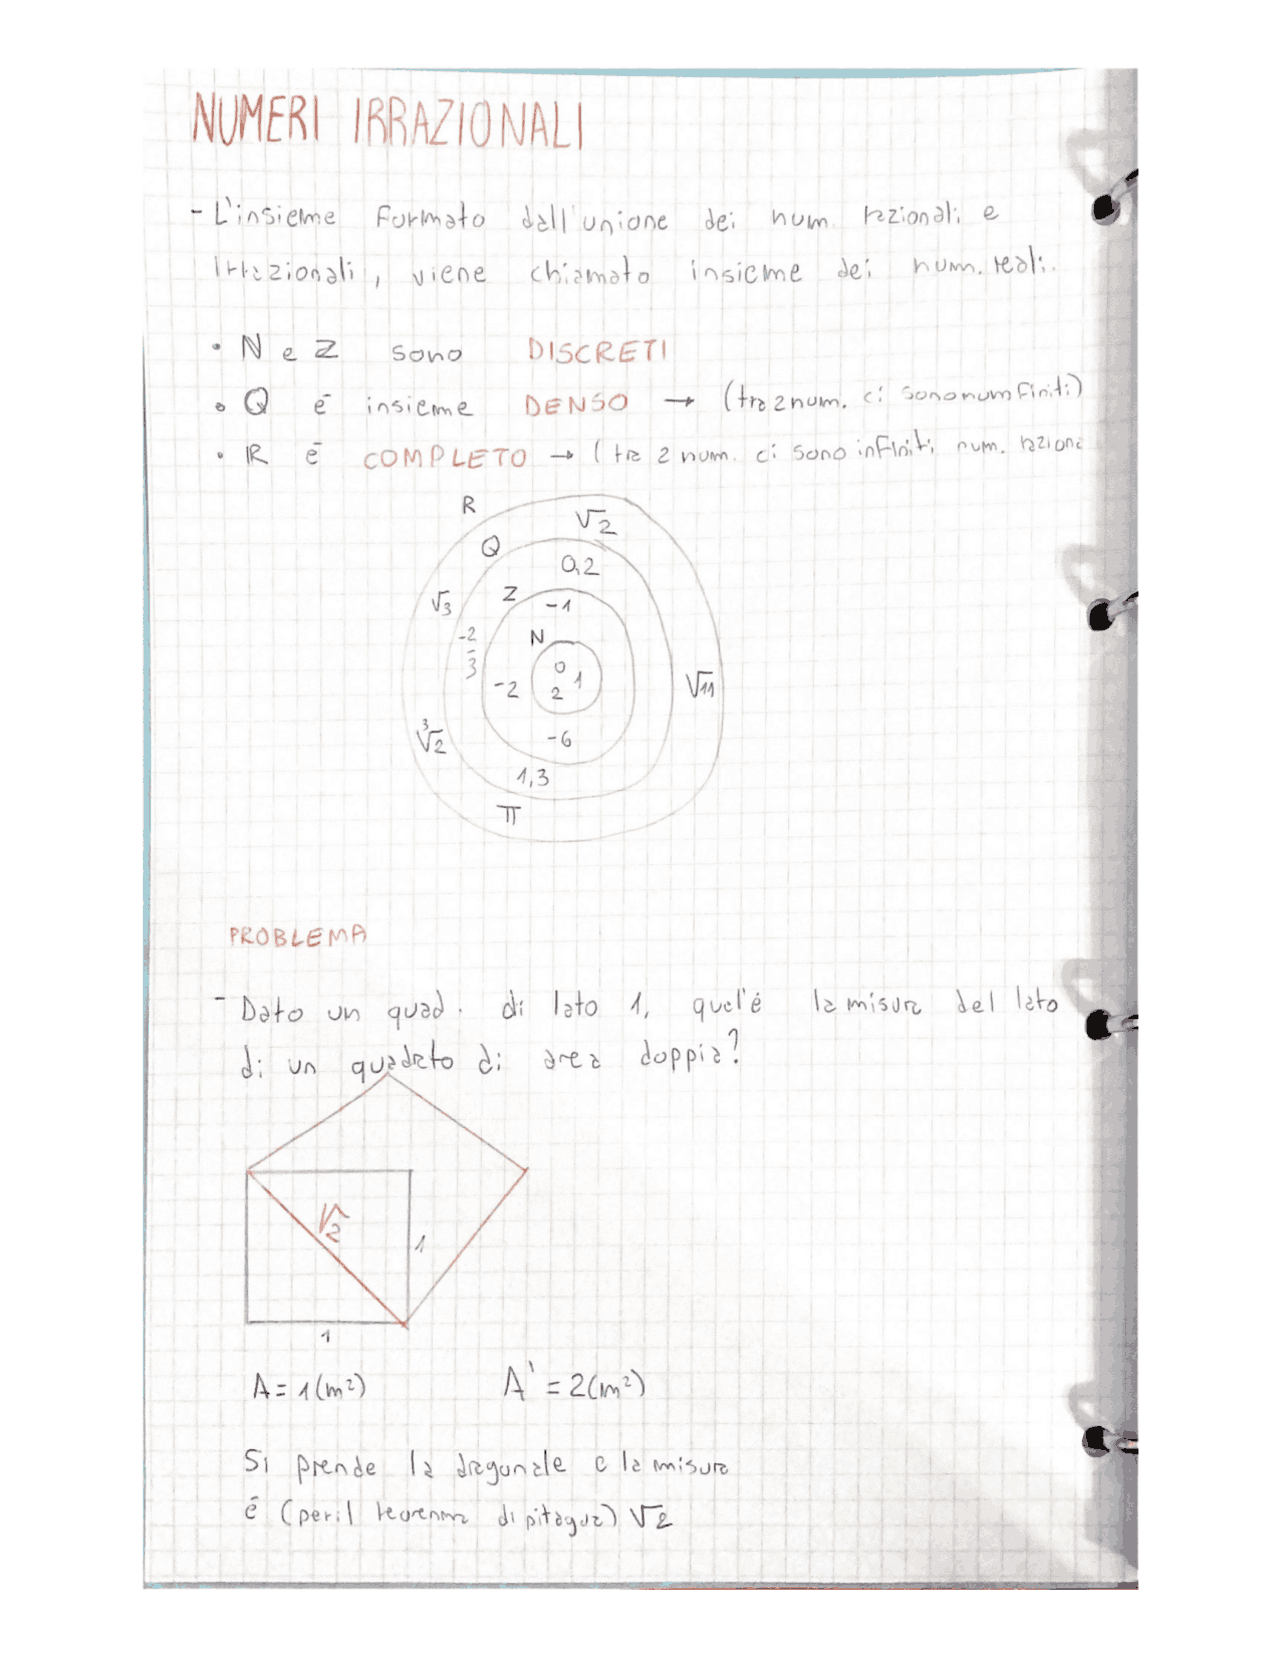 NUMERI IRRAZIONALI
- L'insieme formato dall'unione dei num. razionali e
irrazionali, viene chiamato insieme dei num. reali.
• N e Z sono DISCRETI
• Q é insieme DENSO → (tra 2 num. ci sono num finiti)
• R é COMPLETO → (tra 2 num. ci sono infiniti num. razione
R
√2
Q
0,2
Z
√3
-1
-2
3
N
0
1
-2
2
√11
³√2
-6
1,3
π
PROBLEMA
- Dato un quad. di lato 1, qual'é la misura del lato
di un quadrato di area doppia?
√2
1
1
A = 1(m²) A' = 2(m²)
Si prende la diagonale e la misura
é (per il teorema di pitagora) √2